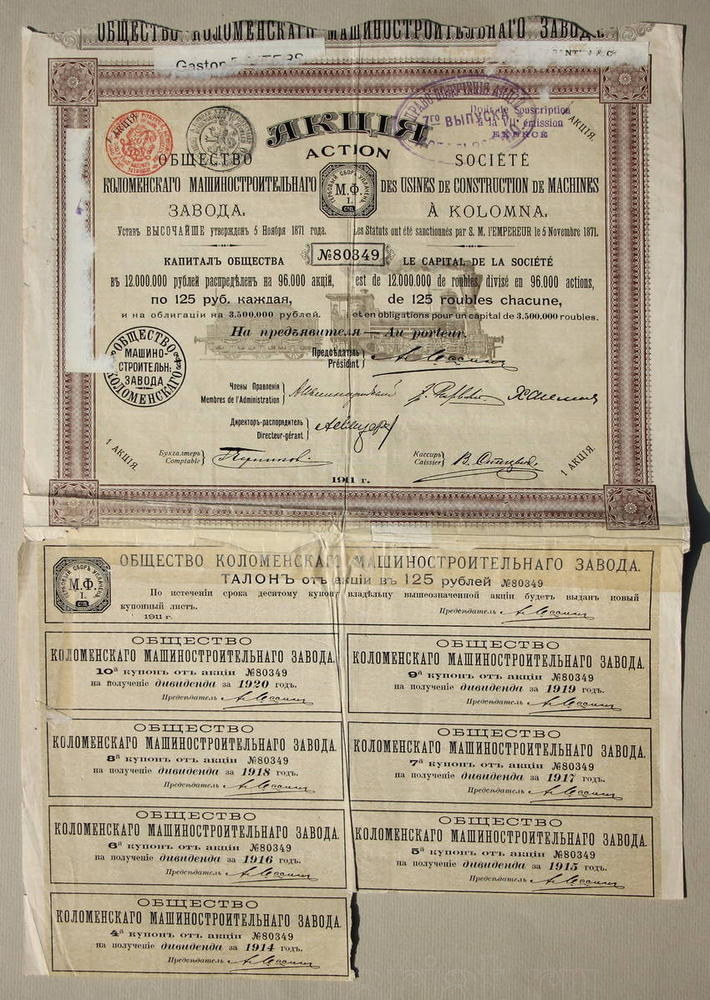 ОБЩЕСТВО КОЛОМЕНСКАГО МАШИНОСТРОИТЕЛЬНАГО ЗАВОДА.
Gaston
1 АКЦІЯ
7го ВЫПУСКА
Droit de Souscription
à la VIIe émission
EXERCÉ
1 АКЦІЯ.
АКЦІЯ
ACTION
ОБЩЕСТВО
КОЛОМЕНСКАГО МАШИНОСТРОИТЕЛЬНАГО
ЗАВОДА.
Уставъ ВЫСОЧАЙШЕ утвержден 5 Ноября 1871 года.
М.Ф.
I.
СПБ.
SOCIÉTÉ
DES USINES DE CONSTRUCTION DE MACHINES
À KOLOMNA.
Les Statuts ont été sanctionnés par S. M. l'EMPEREUR le 5 Novembre 1871.
№80349
КАПИТАЛЪ ОБЩЕСТВА
въ 12.000.000 рублей распредѣленъ на 96.000 акцій,
по 125 руб. каждая,
и на облигаціи на 3.500.000 рублей.
LE CAPITAL DE LA SOCIÉTÉ
est de 12.000.000 de roubles, divisé en 96.000 actions,
de 125 roubles chacune,
et en obligations pour un capital de 3.500.000 roubles.
На предъявителя — Au porteur.
ОБЩЕСТВО
МАШИНО-
СТРОИТЕЛЬН:
ЗАВОДА
КОЛОМЕНСКАГО
Предсѣдатель
Président
Члены Правленія
Membres de l'Administration
Директоръ-распорядитель
Directeur-gérant
Бухгалтеръ
Comptable
Кассиръ
Caissier
1 АКЦІЯ.
1911 г.
1 АКЦІЯ.
М.Ф.
I.
СПБ.
ОБЩЕСТВО КОЛОМЕНСКАГО МАШИНОСТРОИТЕЛЬНАГО ЗАВОДА.
ТАЛОНЪ отъ акціи въ 125 рублей №80349
По истеченіи срока десятому купону владѣльцу вышеозначенной акціи будетъ выданъ новый
купонный листъ.
1911 г.
Предсѣдатель
ОБЩЕСТВО
КОЛОМЕНСКАГО МАШИНОСТРОИТЕЛЬНАГО ЗАВОДА.
10й купонъ отъ акціи №80349
на полученіе дивиденда за 1920 годъ.
Предсѣдатель
ОБЩЕСТВО
КОЛОМЕНСКАГО МАШИНОСТРОИТЕЛЬНАГО ЗАВОДА.
9й купонъ отъ акціи №80349
на полученіе дивиденда за 1919 годъ.
Предсѣдатель
ОБЩЕСТВО
КОЛОМЕНСКАГО МАШИНОСТРОИТЕЛЬНАГО ЗАВОДА.
8й купонъ отъ акціи №80349
на полученіе дивиденда за 1918 годъ.
Предсѣдатель
ОБЩЕСТВО
КОЛОМЕНСКАГО МАШИНОСТРОИТЕЛЬНАГО ЗАВОДА.
7й купонъ отъ акціи №80349
на полученіе дивиденда за 1917 годъ.
Предсѣдатель
ОБЩЕСТВО
КОЛОМЕНСКАГО МАШИНОСТРОИТЕЛЬНАГО ЗАВОДА.
6й купонъ отъ акціи №80349
на полученіе дивиденда за 1916 годъ.
Предсѣдатель
ОБЩЕСТВО
КОЛОМЕНСКАГО МАШИНОСТРОИТЕЛЬНАГО ЗАВОДА.
5й купонъ отъ акціи №80349
на полученіе дивиденда за 1915 годъ.
Предсѣдатель
ОБЩЕСТВО
КОЛОМЕНСКАГО МАШИНОСТРОИТЕЛЬНАГО ЗАВОДА.
4й купонъ отъ акціи №80349
на полученіе дивиденда за 1914 годъ.
Предсѣдатель